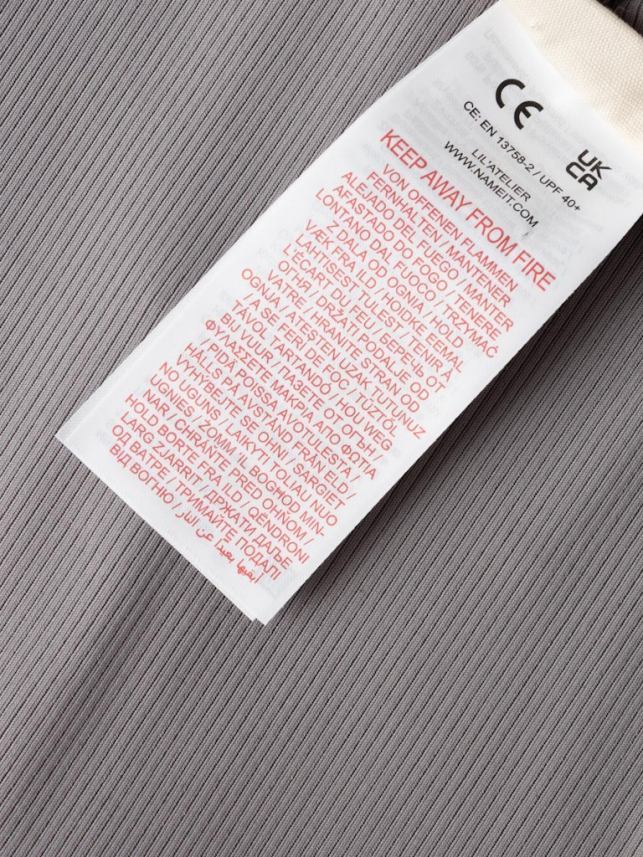 CE
CE: EN 13758-2 / UPF 40+
UK
CA
LIL'ATELIER
WWW.NAMEIT.COM
KEEP AWAY FROM FIRE
VON OFFENEN FLAMMEN
FERNHALTEN / MANTENER
ALEJADO DEL FUEGO / MANTER
AFASTADO DO FOGO / TENERE
LONTANO DAL FUOCO / TRZYMAĆ
Z DALA OD OGNIA / HOLD
VÆK FRA ILD / HOIDKE EEMAL
LAHTISEST TULEST / TENIR À
L'ÉCART DU FEU / БЕРЕЧЬ ОТ
ОГНЯ / DRŽATI PODALJE OD
VATRE / HRANITE STRAN OD
OGNJA / ATEŞTEN UZAK TUTUNUZ
/ A SE FERI DE FOC / TŰZTŐL
TÁVOL TARTANDÓ / HOU WEG
BIJ VUUR / ПАЗЕТЕ ОТ ОГЪН /
ΦΥΛΑΣΣΕΤΕ ΜΑΚΡΙΑ ΑΠΟ ΦΩΤΙΑ
/ PIDÄ POISSA AVOTULESTA /
HÅLLS PÅ AVSTÅND FRÅN ELD /
VYHÝBEJTE SE OHNI / SARGIET
NO UGUNS / LAIKYTI TOLIAU NUO
UGNIES / ŻOMM 'IL BOGĦOD MIN-
NAR / CHRÁŇTE PRED OHŇOM /
HOLD BORTE FRA ILD / QËNDRONI
LARG ZJARRIT / ДРЖАТИ ДАЉЕ
ОД ВАТРЕ / ТРИМАЙТЕ ПОДАЛІ
ВІД ВОГНЮ / أبقيها بعيدا عن النار